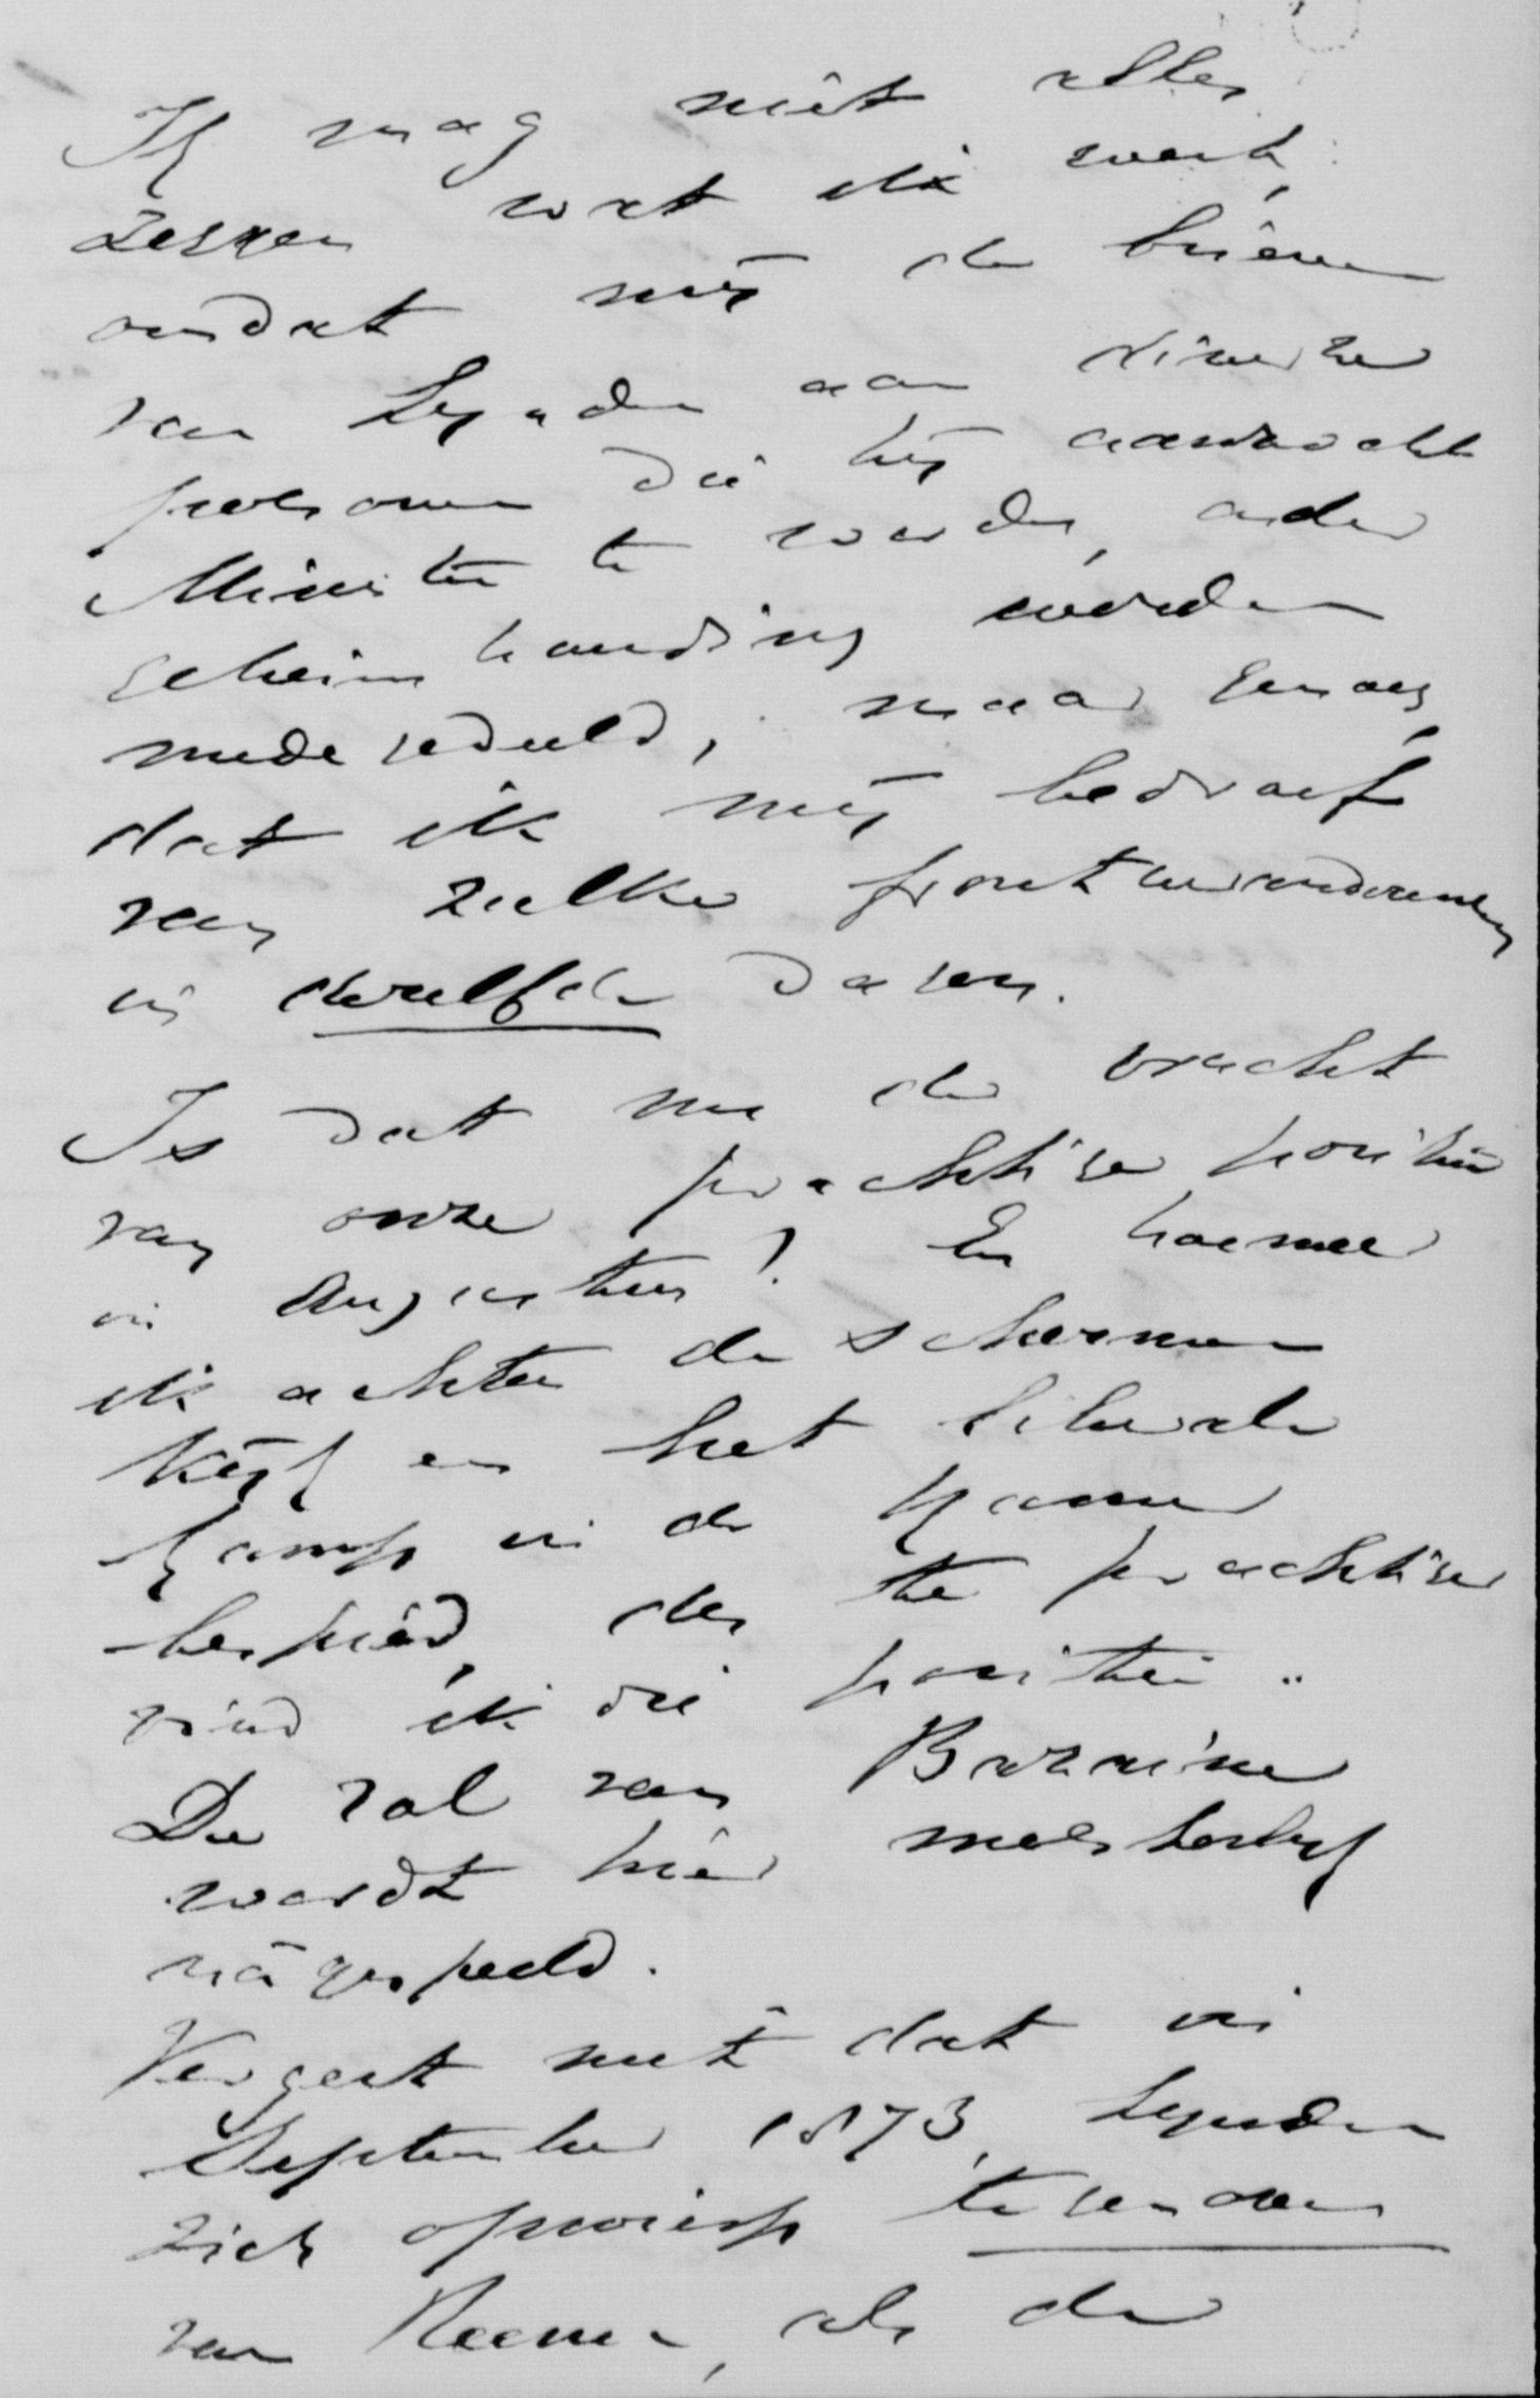 Ik mag niet alles
zeggen wat ik weet,
omdat mij de brieven
van Lynden aan diverse
personen die hij aanzocht
Minister te worden, onder
geheimhouding werden
medegedeeld, maar genoeg,
dat ik mij bedroef
van zulke frontveranderingen
in dezelfde dagen.
Is dat nu de vrucht
van onze prachtige positie
in Augustus? En hoe meer
ik achter de schermen
kijk en het liberale
kamp in de Kamer
bespied, des te prachtiger
vind ik die positie..
De rol van Bazaine
wordt hier meesterlijk
nágespeeld.
Vergeet niet dat in
September 1873, Lynden
zich opwierp tegenover
van Reenen, als de